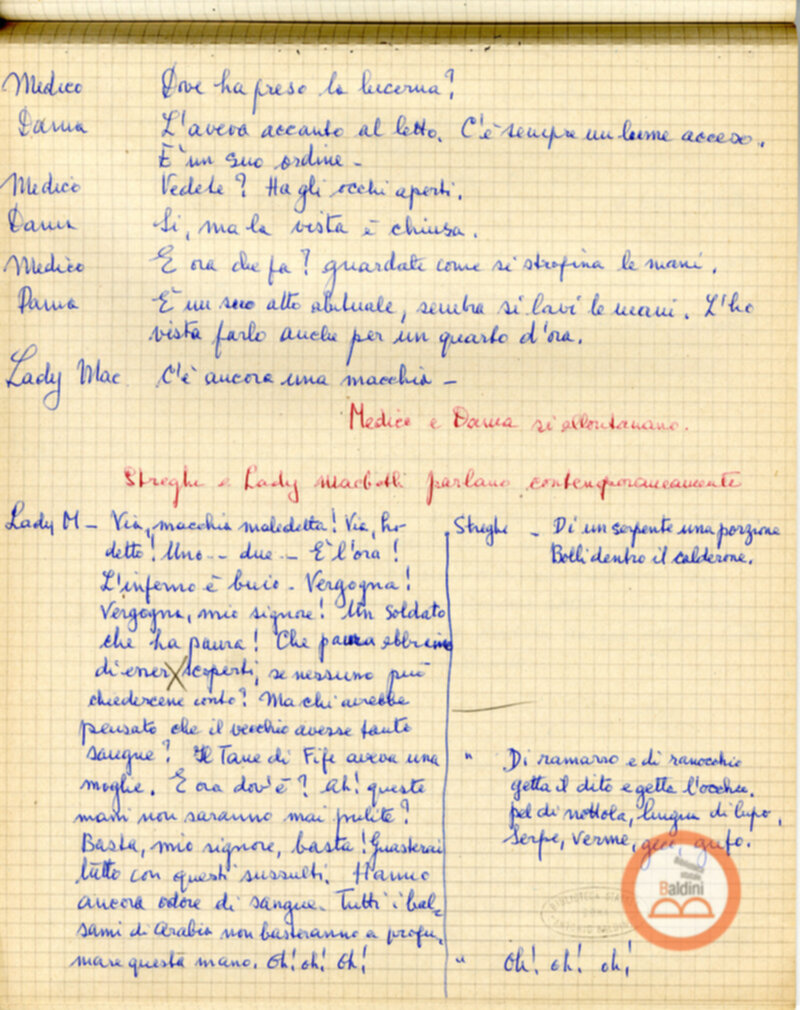 Medico Dove ha preso la lucerna?
Dama L'aveva accanto al letto. C'è sempre un lume acceso.
È un suo ordine -
Medico Vedete? Ha gli occhi aperti.
Dama Sì, ma la vista è chiusa.
Medico E ora che fa? guardate come si strofina le mani.
Dama È un suo atto abituale, sembra si lavi le mani. L'ho
vista farlo anche per un quarto d'ora.
Lady Mac. C'è ancora una macchia -
Medico e Dama si allontanano.
Streghe e Lady Macbeth parlano contemporaneamente
Lady M - Via, macchia maledetta! Via, ho
detto! Uno -- due -- È l'ora!
L'inferno è buio - Vergogna!
Vergogna, mio signore! Un soldato
che ha paura! Che paura abbiamo
di esser scoperti, se nessuno può
chiedercene conto? Ma chi avrebbe
pensato che il vecchio avesse tanto
sangue? Il Tane di Fife aveva una
moglie. E ora dov'è? Ah! queste
mani non saranno mai pulite?
Basta, mio signore, basta! Guasterai
tutto con questi sussulti. Hanno
ancora odore di sangue. Tutti i bal-
sami di Arabia non basteranno a profu-
mare questa mano. Oh! oh! Oh!
Streghe - Di un serpente una porzione
Bolli dentro il calderone.
" Di ramarro e di ranocchio
getta il dito e getta l'occhio.
pel di nottola, lingua di lupo,
serpe, verme, gufo.
" Oh! oh! oh!
domenico
Baldini
BIBLIOTECA